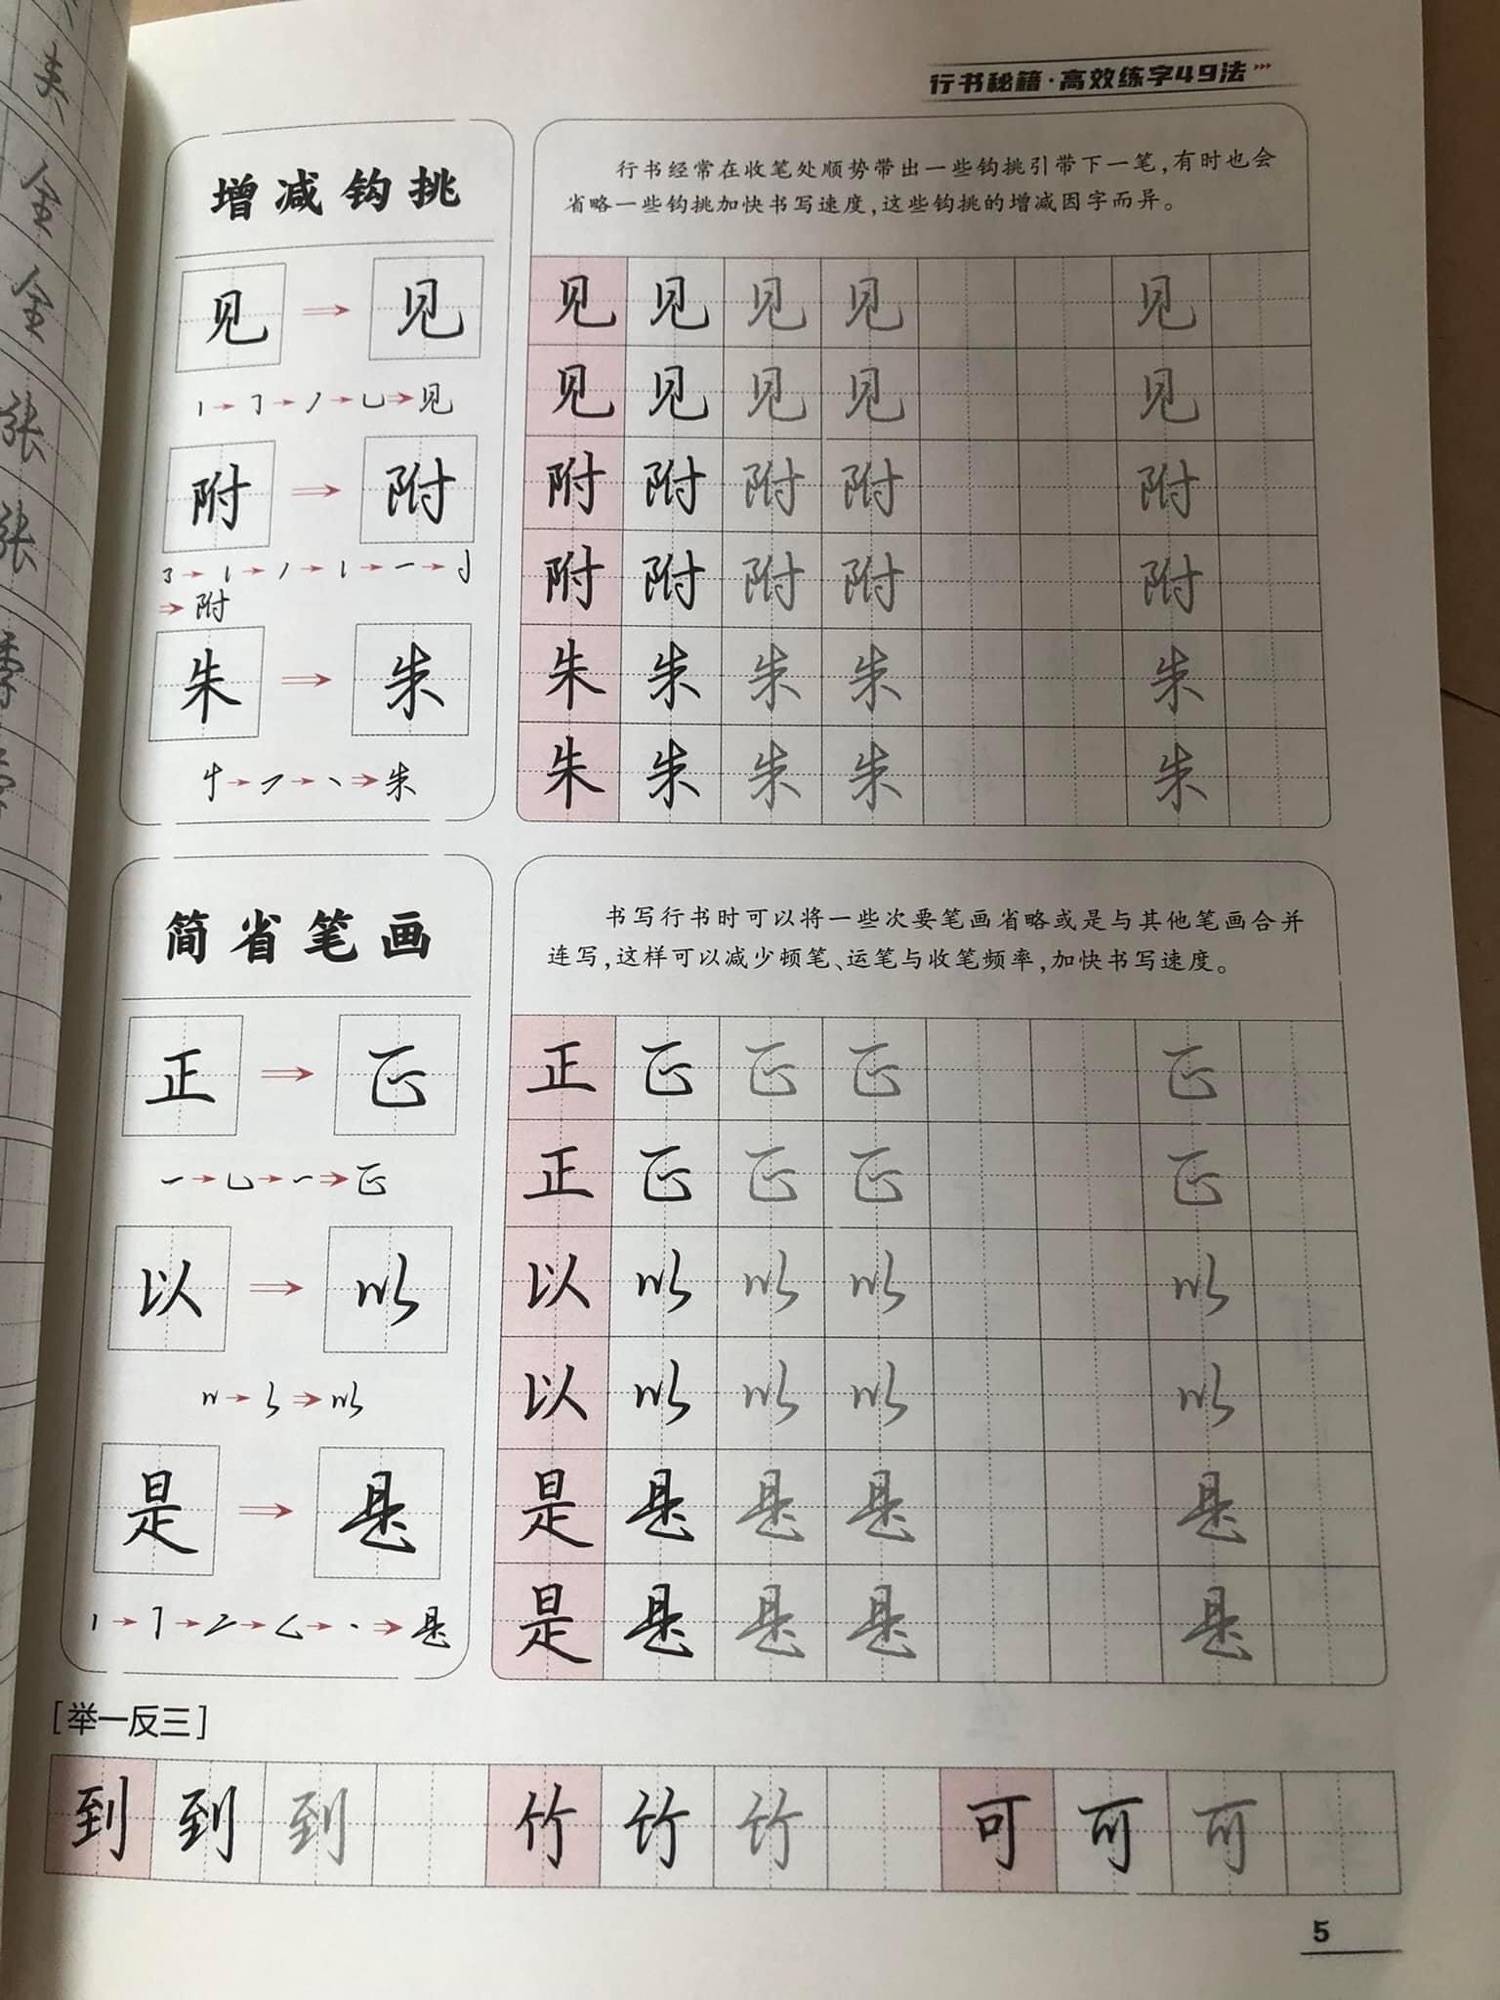 行书秘籍·高效练字49法
增减钩挑
行书经常在收笔处顺势带出一些钩挑引带下一笔,有时也会
省略一些钩挑加快书写速度,这些钩挑的增减因字而异。
见 见
见
附 附
附
朱 朱
朱
见 见 见 见 见
见 见 见 见 见
附 附 附 附 附
附 附 附 附 附
朱 朱 朱 朱 朱
朱 朱 朱 朱 朱
简省笔画
书写行书时可以将一些次要笔画省略或是与其他笔画合并
连写,这样可以减少顿笔、运笔与收笔频率,加快书写速度。
正 正
正
以 以
以
是 是
是
正 正 正 正 正
正 正 正 正 正
以 以 以 以 以
以 以 以 以 以
是 是 是 是 是
是 是 是 是 是
[举一反三]
到 到 到 竹 竹 竹 可 可 可
5
金
金
张
张